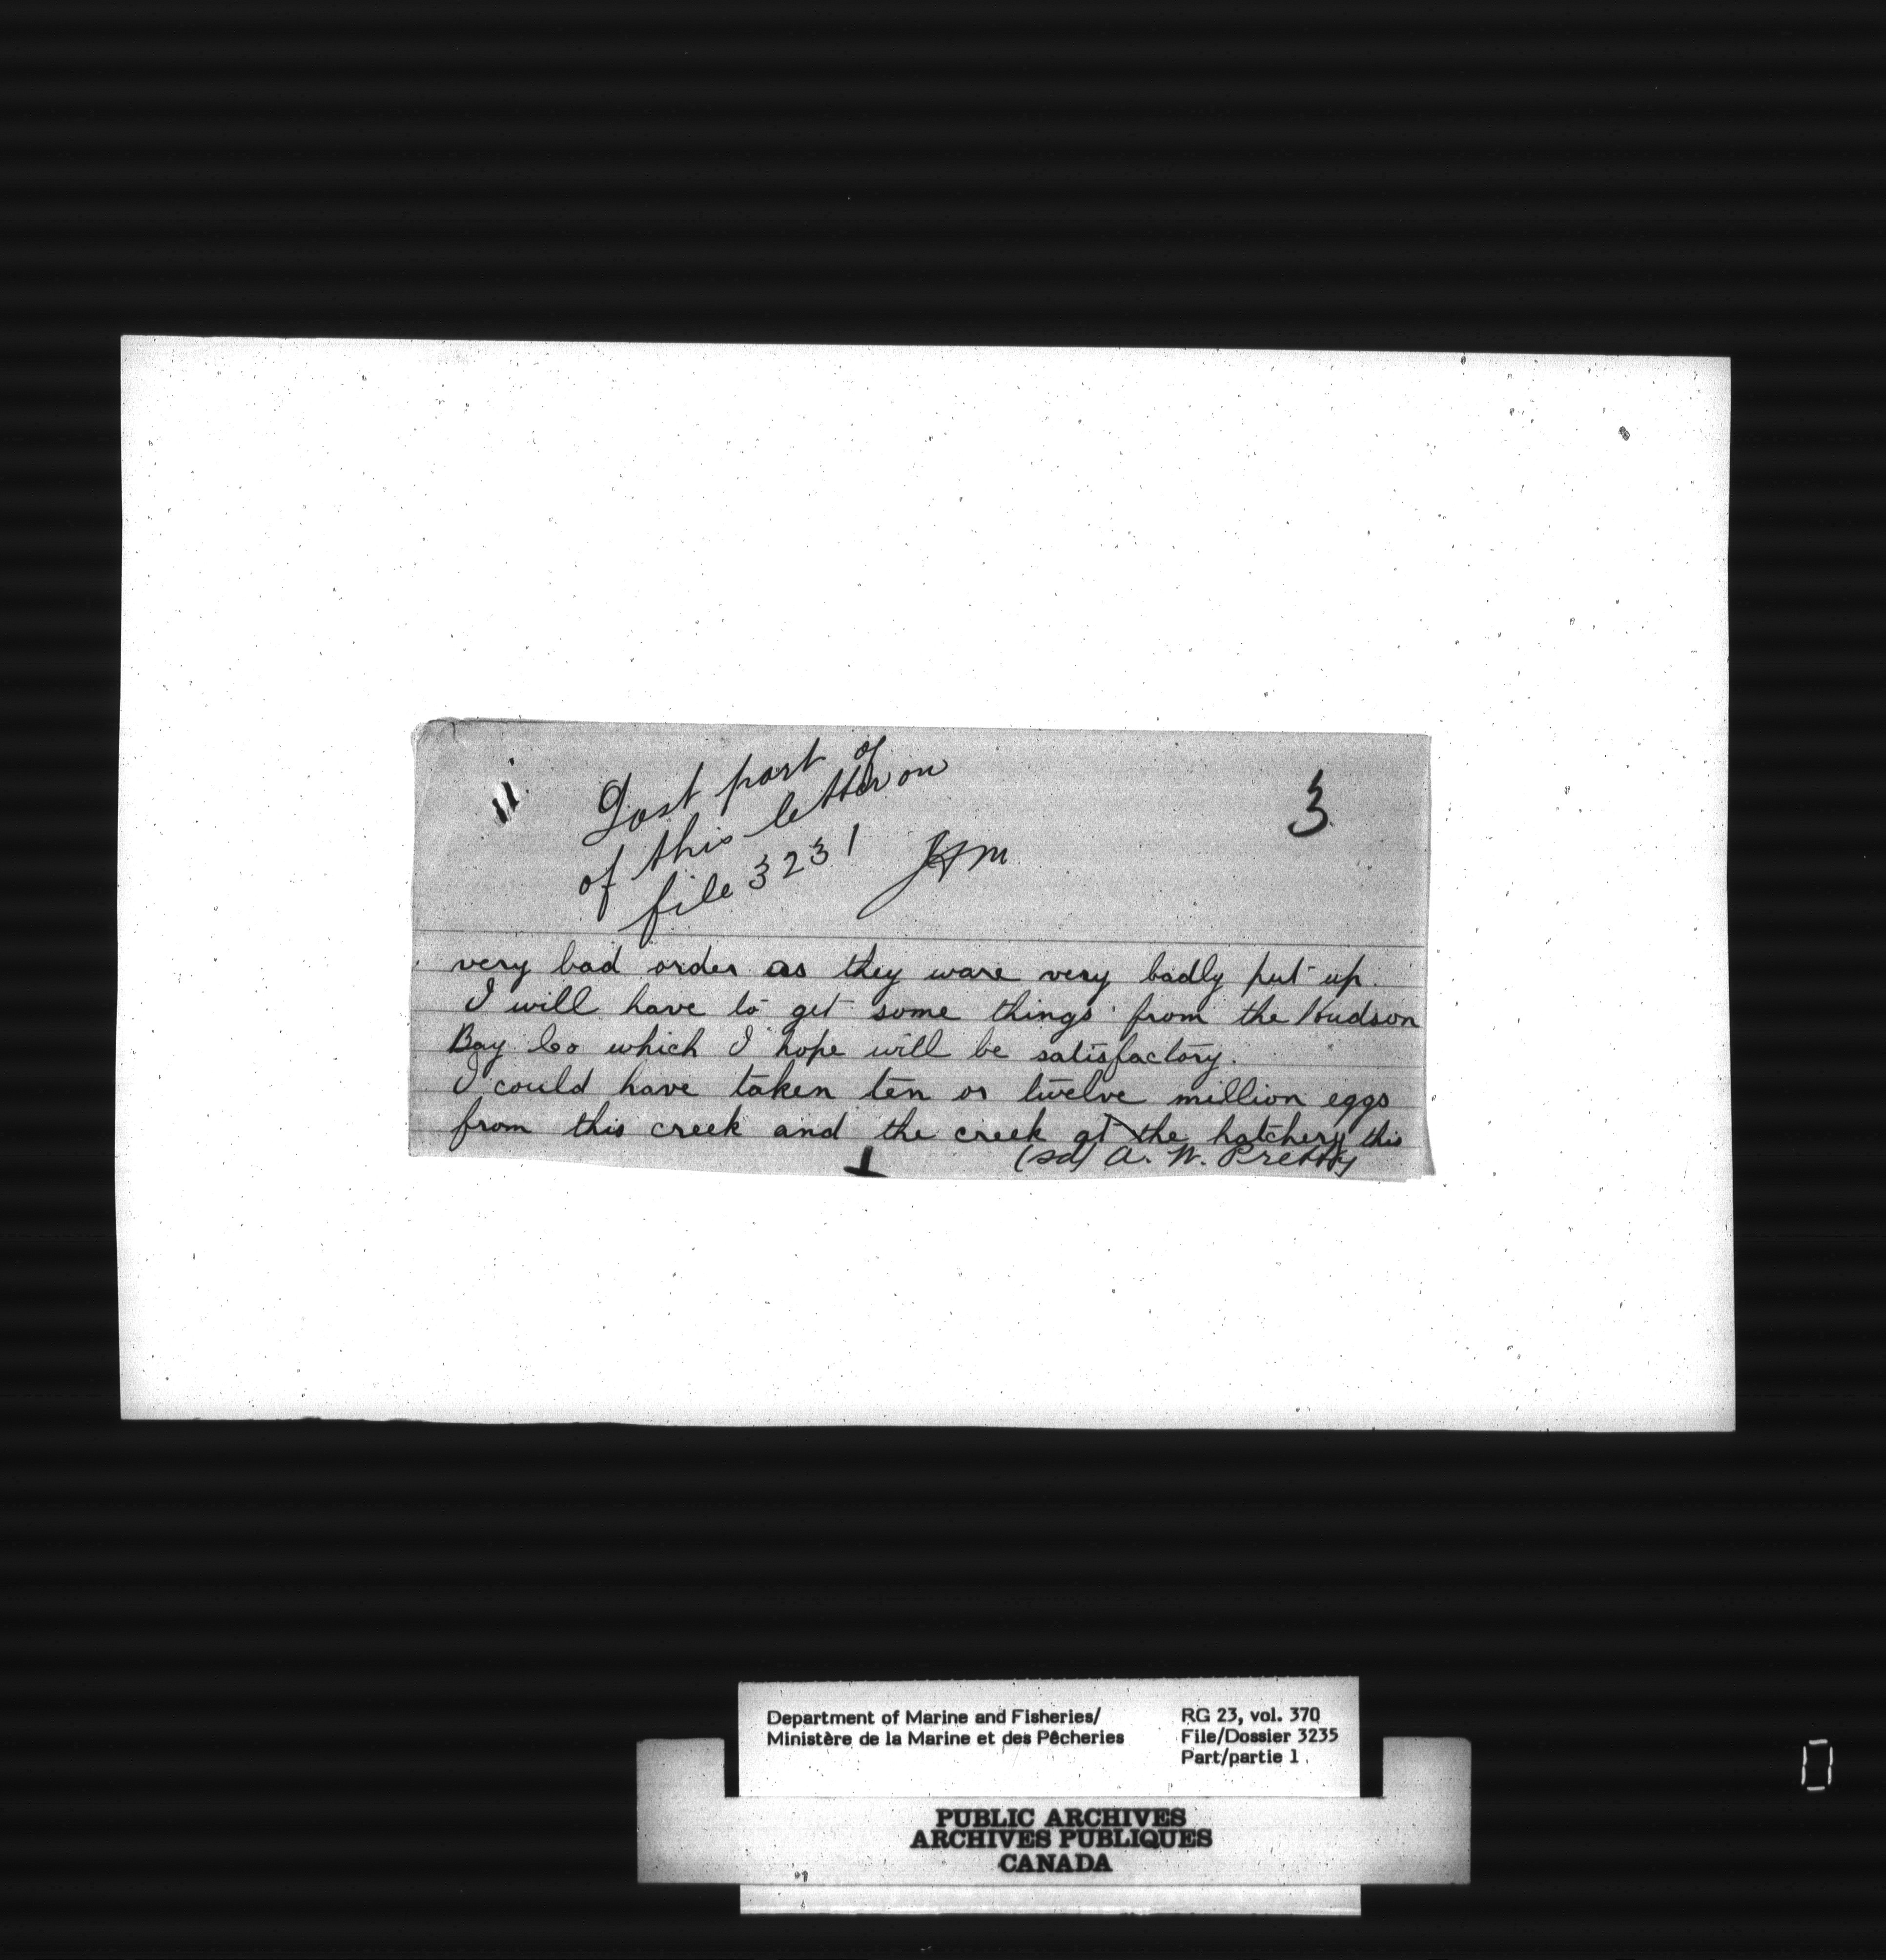 Last part of
of this letter on
file 3231
3
very bad order as they ware very badly put up.
I will have to get some things from the Hudson
Bay Co which I hope will be satisfactory.
I could have taken ten or twelve million eggs
from this creek and the creek at the hatchery this
(sd) A. W. Pretty
Department of Marine and Fisheries/
Ministère de la Marine et des Pêcheries
RG 23, vol. 370
File/Dossier 3235
Part/partie 1
PUBLIC ARCHIVES
ARCHIVES PUBLIQUES
CANADA